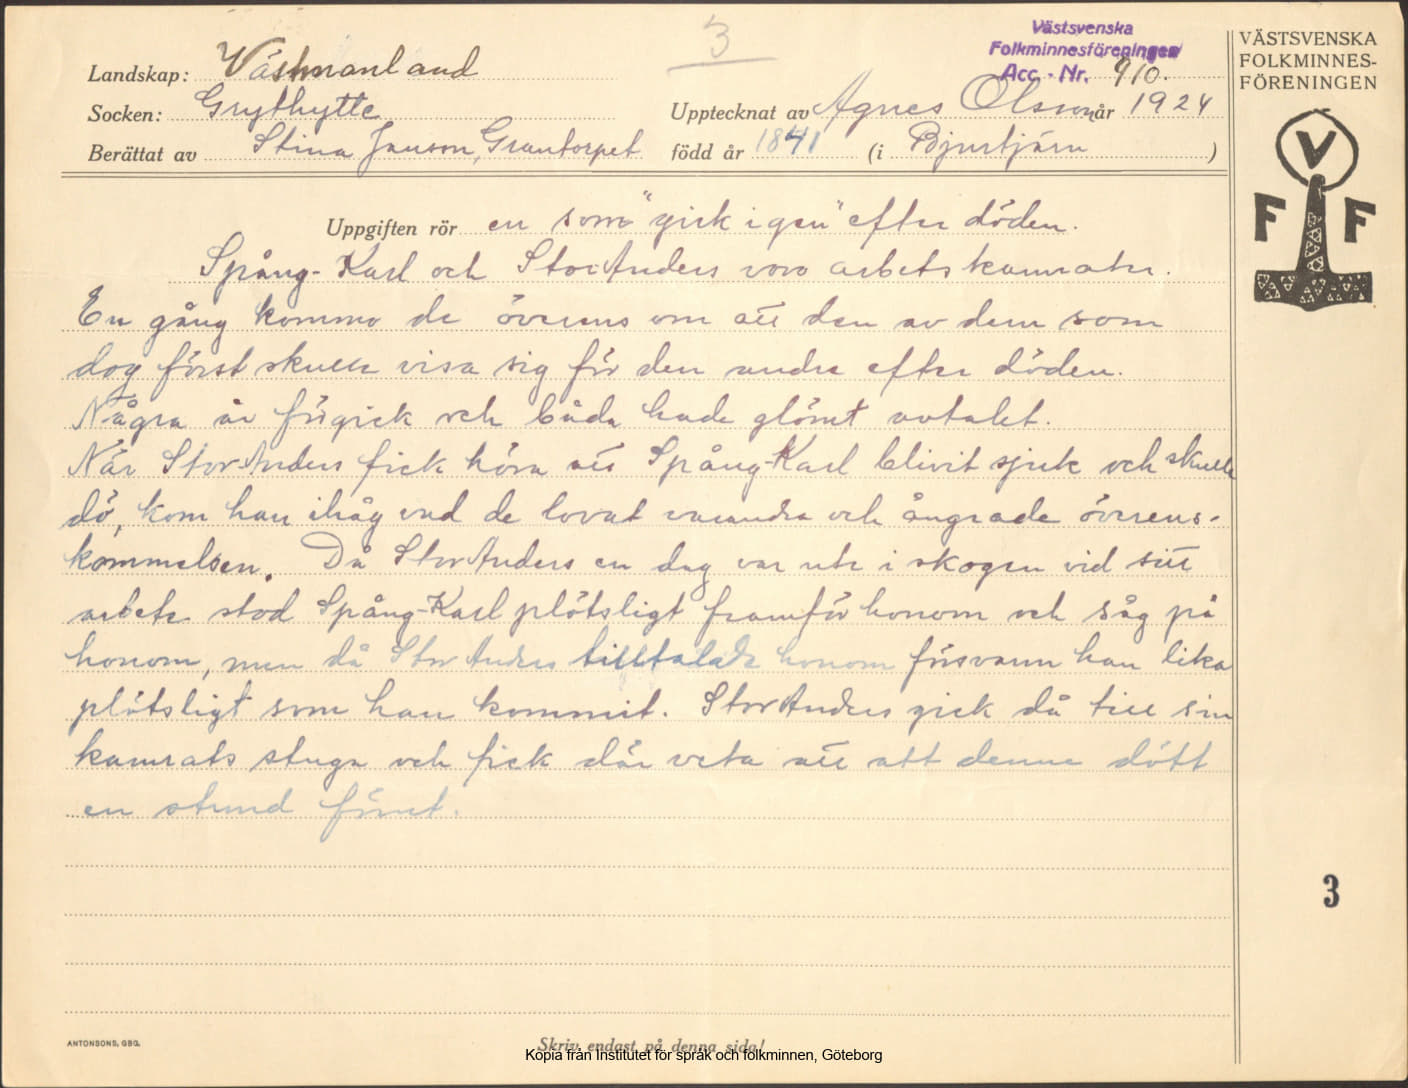 3
Västsvenska
Folkminnesföreningen
Acc. Nr. 910.
Landskap: Västmanland
Socken: Grythytte
Upptecknat av Agnes Olsson år 1924
Berättat av Stina Janson, Grantorpet född år 1841 (i Bjurtjärn)
VÄSTSVENSKA
FOLKMINNES-
FÖRENINGEN
V
F F
Uppgiften rör en som "gick igen" efter döden.
Spång-Karl och Stor Anders voro arbetskamrater.
En gång kommo de överens om att den av dem som
dog först skulle visa sig för den andre efter döden.
Några år förgick och båda hade glömt avtalet.
När Stor Anders fick höra att Spång-Karl blivit sjuk och skulle
dö, kom han ihåg vad de lovat varandra och ångrade överens-
kommelsen. Då Stor Anders en dag var ute i skogen vid sitt
arbete stod Spång-Karl plötsligt framför honom och såg på
honom, men då Stor Anders tilltalade honom försvann han lika
plötsligt som han kommit. Stor Anders gick då till sin
kamrats stuga och fick där veta att att denne dött
en stund förut.
3
ANTONSONS, GBG.
Skriv endast på denna sida!
Kopia från Institutet för språk och folkminnen, Göteborg